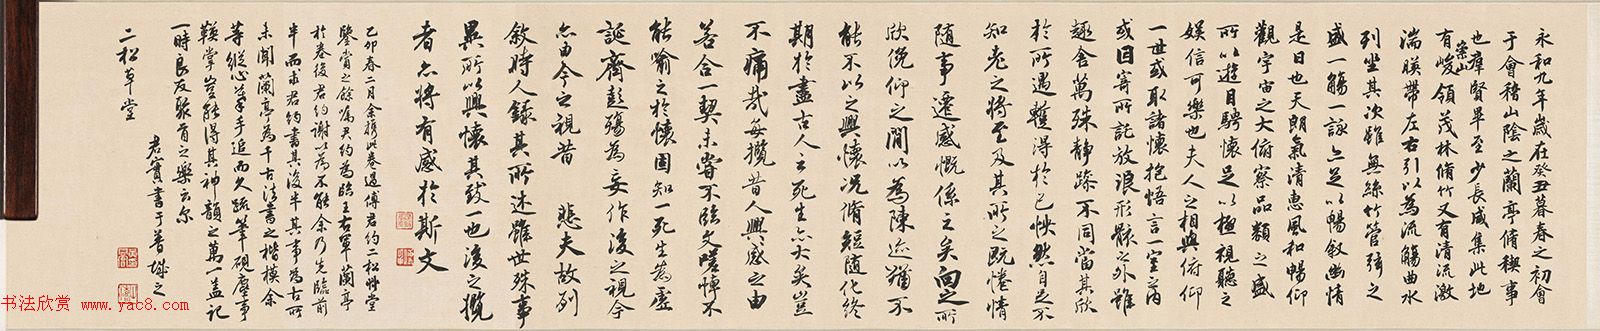 永和九年歲在癸丑暮春之初會
于會稽山陰之蘭亭脩稧事
也羣賢畢至少長咸集此地
有崇山峻領茂林脩竹又有清流激
湍暎帶左右引以為流觴曲水
列坐其次雖無絲竹管弦之
盛一觴一詠亦足以暢敘幽情
是日也天朗氣清惠風和暢仰
觀宇宙之大俯察品類之盛
所以遊目騁懷足以極視聽之
娛信可樂也夫人之相與俯仰
一世或取諸懷抱悟言一室之內
或因寄所託放浪形骸之外雖
趣舍萬殊靜躁不同當其欣
於所遇蹔得於己怏然自足不
知老之將至及其所之既惓情
隨事遷感慨係之矣向之所
欣俛仰之閒以為陳迹猶不
能不以之興懷況脩短隨化終
期於盡古人云死生亦大矣豈
不痛哉每攬昔人興感之由
若合一契未嘗不臨文嗟悼不
能喻之於懷固知一死生為虛
誕齊彭殤為妄作後之視今
亦由今之視昔 悲夫故列
敘時人錄其所述雖世殊事
異所以興懷其致一也後之攬
者亦將有感於斯文
乙卯春二月余攜此卷過傅君約二松草堂
鑒賞之餘為約為臨王右軍蘭亭
於卷後君約謝以為不能余乃先臨前
半而求君約書其後半其事為古所
未聞蘭亭為千古法書之楷模余
等縱心摹手追而久疏筆硯塵事
鞅掌豈能得其神韻之萬一蓋記
一時良友聚首之樂云尔
君實書于普城之
二松草堂
书法欣赏 www.yac8.com